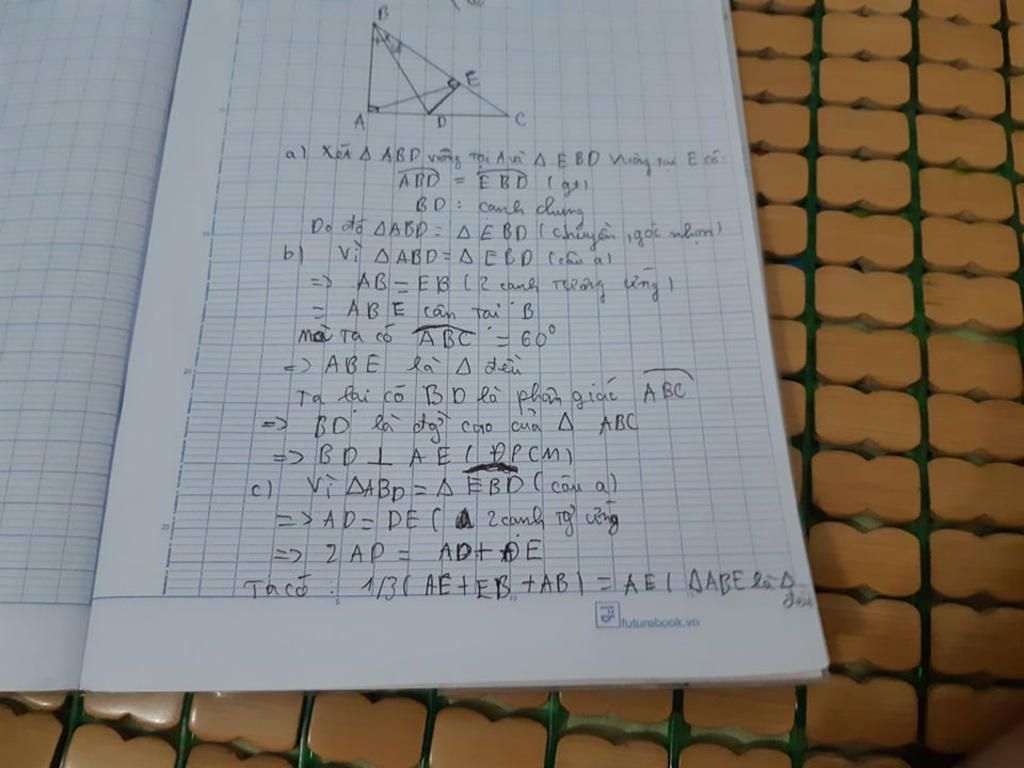 B
E
A
D
C
a) Xét Δ ABD vuông tại A và Δ EBD vuông tại E có:
ABD = EBD (gt)
BD : cạnh chung
Do đó ΔABD = Δ EBD (chuyền, góc nhọn)
b) Vì Δ ABD = Δ EBD (câu a)
=> AB = EB (2 cạnh tương ứng)
= ABE cân tại B
mà ta có ABC = 60°
=> ABE là Δ đều
Ta lại có BD là phân giác ABC
=> BD là đg cao của Δ ABC
=> BD ⊥ AE (ĐPCM)
c) Vì ΔABD = Δ EBD (câu a)
=> AD = DE ( 2 cạnh tg ứng
=> 2 AD = AD + DE
Ta có : 1/3 ( AE + EB + AB ) = AE ( ΔABE là Δ
đều
futurebook.vn